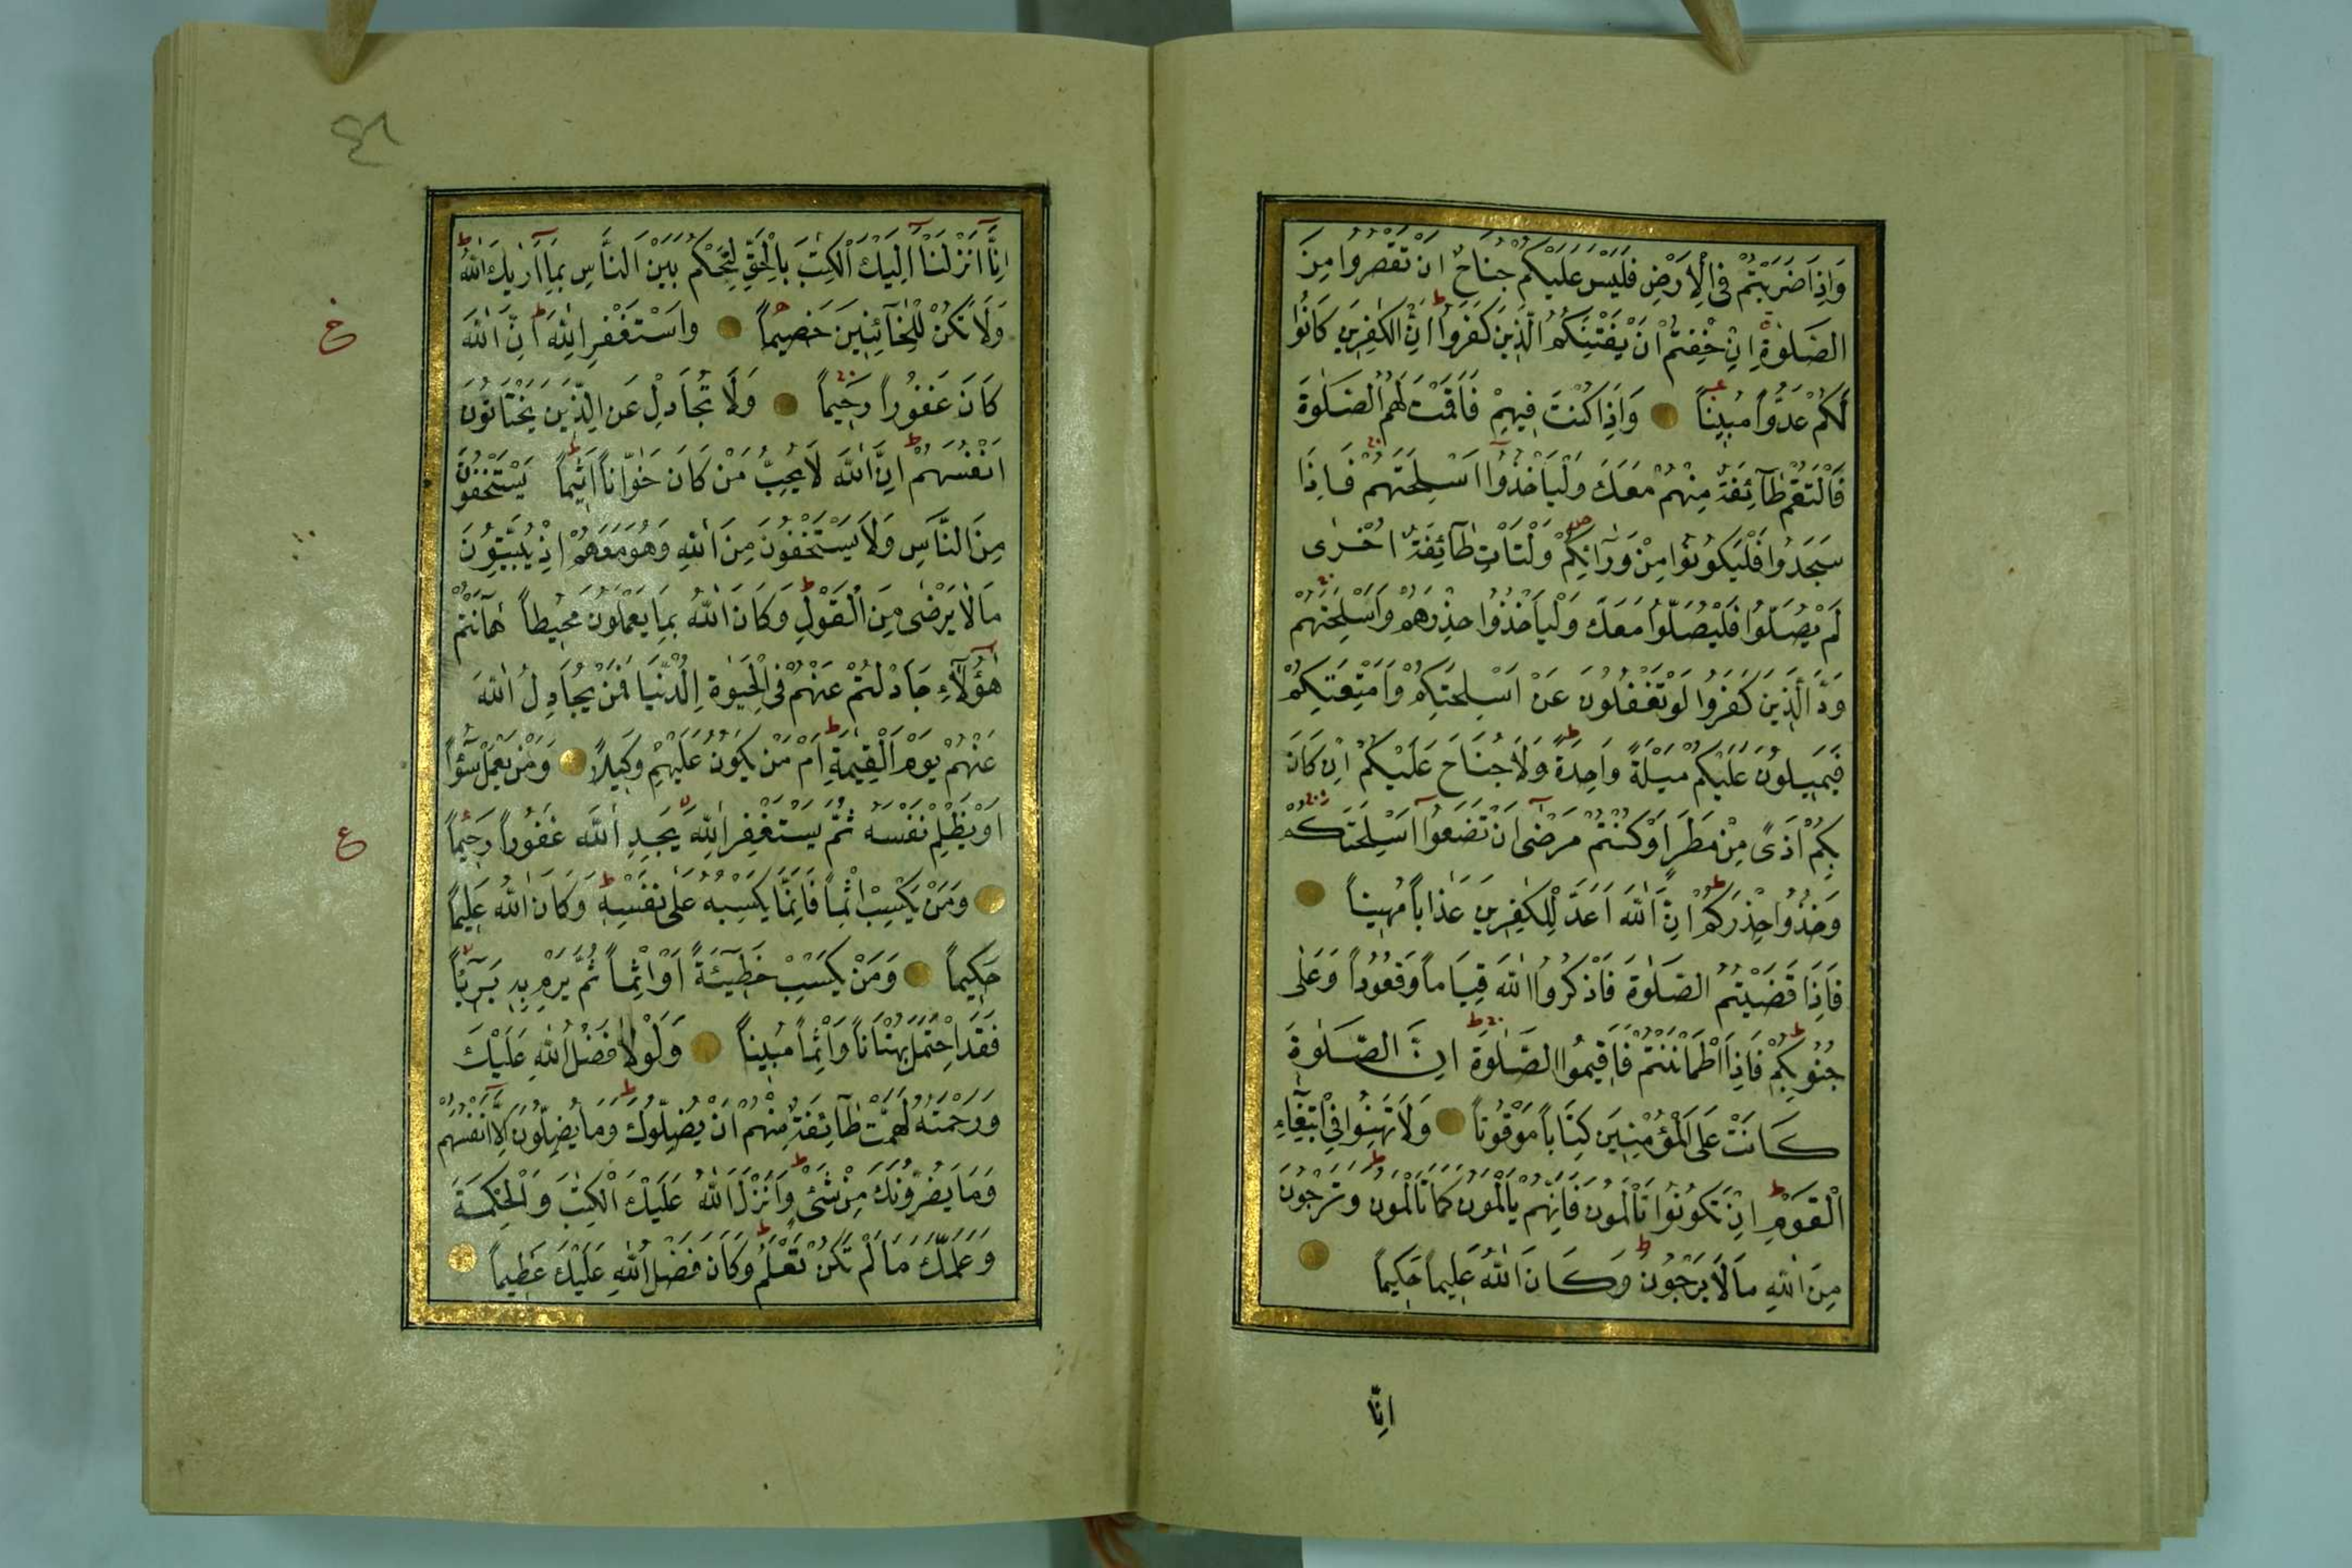 وَاِذَا ضَرَبْتُمْ فِي الْاَرْضِ فَلَيْسَ عَلَيْكُمْ جُنَاحٌ اَنْ تَقْصُرُوا مِنَ
الصَّلٰوةِ اِنْ خِفْتُمْ اَنْ يَفْتِنَكُمُ الَّذِينَ كَفَرُوا اِنَّ الْكٰفِرِينَ كَانُوا
لَكُمْ عَدُوًّا مُبِينًا وَاِذَا كُنْتَ فِيهِمْ فَاَقَمْتَ لَهُمُ الصَّلٰوةَ
فَلْتَقُمْ طَآئِفَةٌ مِنْهُمْ مَعَكَ وَلْيَاْخُذُوا اَسْلِحَتَهُمْ فَاِذَا
سَجَدُوا فَلْيَكُونُوا مِنْ وَرَآئِكُمْ وَلْتَاْتِ طَآئِفَةٌ اُخْرٰى
لَمْ يُصَلُّوا فَلْيُصَلُّوا مَعَكَ وَلْيَاْخُذُوا حِذْرَهُمْ وَاَسْلِحَتَهُمْ
وَدَّ الَّذِينَ كَفَرُوا لَوْ تَغْفُلُونَ عَنْ اَسْلِحَتِكُمْ وَاَمْتِعَتِكُمْ
فَيَمِيلُونَ عَلَيْكُمْ مَيْلَةً وَاحِدَةً وَلَا جُنَاحَ عَلَيْكُمْ اِنْ كَانَ
بِكُمْ اَذًى مِنْ مَطَرٍ اَوْ كُنْتُمْ مَرْضٰى اَنْ تَضَعُوا اَسْلِحَتَكُمْ
وَخُذُوا حِذْرَكُمْ اِنَّ اللّٰهَ اَعَدَّ لِلْكٰفِرِينَ عَذَابًا مُهِينًا
فَاِذَا قَضَيْتُمُ الصَّلٰوةَ فَاذْكُرُوا اللّٰهَ قِيَامًا وَقُعُودًا وَعَلٰى
جُنُوبِكُمْ فَاِذَا اطْمَاْنَنْتُمْ فَاَقِيمُوا الصَّلٰوةَ اِنَّ الصَّلٰوةَ
كَانَتْ عَلَى الْمُؤْمِنِينَ كِتَابًا مَوْقُوتًا وَلَا تَهِنُوا فِي ابْتِغَآءِ
الْقَوْمِ اِنْ تَكُونُوا تَاْلَمُونَ فَاِنَّهُمْ يَاْلَمُونَ كَمَا تَاْلَمُونَ وَتَرْجُونَ
مِنَ اللّٰهِ مَا لَا يَرْجُونَ وَكَانَ اللّٰهُ عَلِيمًا حَكِيمًا
اِنَّا
٤٦
اِنَّا اَنْزَلْنَا اِلَيْكَ الْكِتٰبَ بِالْحَقِّ لِتَحْكُمَ بَيْنَ النَّاسِ بِمَا اَرٰيكَ اللّٰهُ
وَلَا تَكُنْ لِلْخَآئِنِينَ خَصِيمًا وَاسْتَغْفِرِ اللّٰهَ اِنَّ اللّٰهَ
كَانَ غَفُورًا رَحِيمًا وَلَا تُجَادِلْ عَنِ الَّذِينَ يَخْتَانُونَ
اَنْفُسَهُمْ اِنَّ اللّٰهَ لَا يُحِبُّ مَنْ كَانَ خَوَّانًا اَثِيمًا يَسْتَخْفُونَ
مِنَ النَّاسِ وَلَا يَسْتَخْفُونَ مِنَ اللّٰهِ وَهُوَ مَعَهُمْ اِذْ يُبَيِّتُونَ
مَا لَا يَرْضٰى مِنَ الْقَوْلِ وَكَانَ اللّٰهُ بِمَا يَعْمَلُونَ مُحِيطًا هٰٓاَنْتُمْ
هٰٓؤُلَآءِ جَادَلْتُمْ عَنْهُمْ فِي الْحَيٰوةِ الدُّنْيَا فَمَنْ يُجَادِلُ اللّٰهَ
عَنْهُمْ يَوْمَ الْقِيٰمَةِ اَمْ مَنْ يَكُونُ عَلَيْهِمْ وَكِيلًا وَمَنْ يَعْمَلْ سُوٓءًا
اَوْ يَظْلِمْ نَفْسَهُ ثُمَّ يَسْتَغْفِرِ اللّٰهَ يَجِدِ اللّٰهَ غَفُورًا رَحِيمًا
وَمَنْ يَكْسِبْ اِثْمًا فَاِنَّمَا يَكْسِبُهُ عَلٰى نَفْسِهِ وَكَانَ اللّٰهُ عَلِيمًا
حَكِيمًا وَمَنْ يَكْسِبْ خَطِيٓئَةً اَوْ اِثْمًا ثُمَّ يَرْمِ بِهِ بَرِيٓئًا
فَقَدِ احْتَمَلَ بُهْتَانًا وَاِثْمًا مُبِينًا وَلَوْلَا فَضْلُ اللّٰهِ عَلَيْكَ
وَرَحْمَتُهُ لَهَمَّتْ طَآئِفَةٌ مِنْهُمْ اَنْ يُضِلُّوكَ وَمَا يُضِلُّونَ اِلَّا اَنْفُسَهُمْ
وَمَا يَضُرُّونَكَ مِنْ شَيْءٍ وَاَنْزَلَ اللّٰهُ عَلَيْكَ الْكِتٰبَ وَالْحِكْمَةَ
وَعَلَّمَكَ مَا لَمْ تَكُنْ تَعْلَمُ وَكَانَ فَضْلُ اللّٰهِ عَلَيْكَ عَظِيمًا
ع